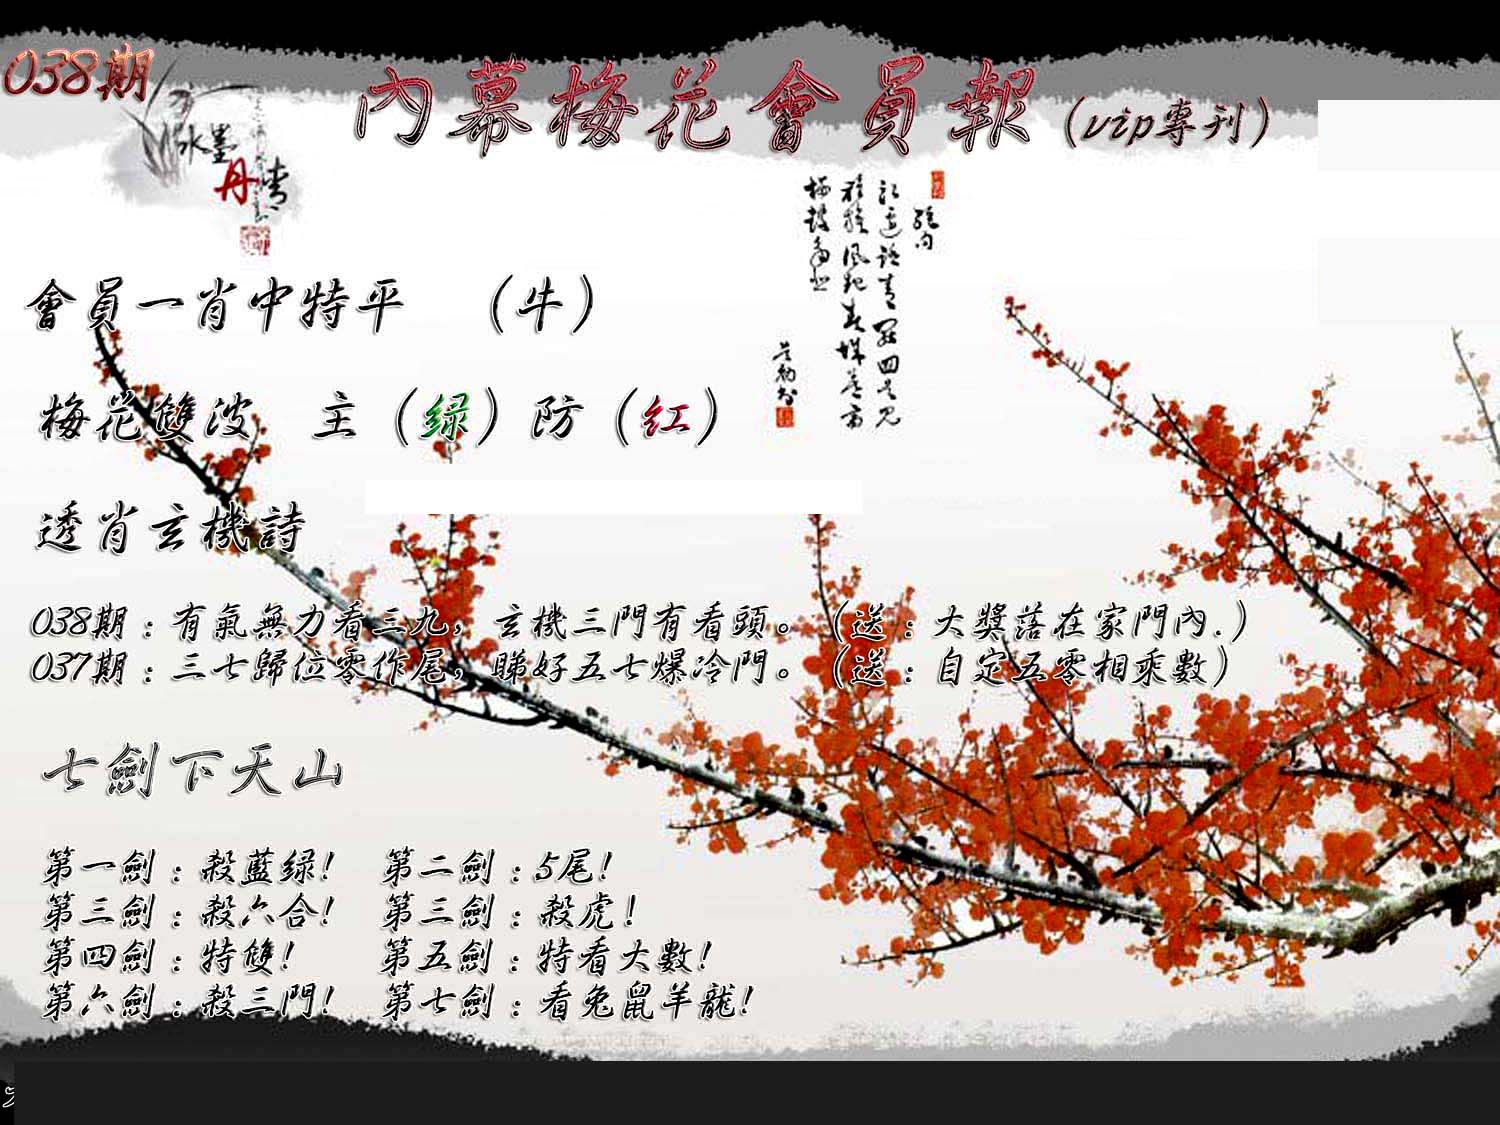 038期
內幕梅花會員報(vip專刊)
水墨
丹青
絕句
會員一肖中特平 (牛)
梅花雙波 主(绿)防(红)
透肖玄機詩
038期:有氣無力看三九,玄機三門有看頭。(送:大獎落在家門內.)
037期:三七歸位零作尾,睇好五七爆冷門。(送:自定五零相乘數)
七劍下天山
第一劍:殺藍绿! 第二劍:5尾!
第三劍:殺六合! 第三劍:殺虎!
第四劍:特雙! 第五劍:特看大數!
第六劍:殺三門! 第七劍:看兔鼠羊龍!